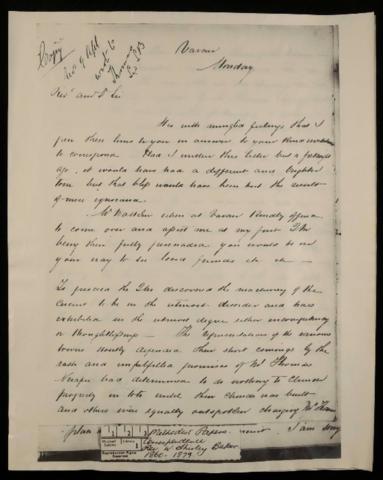 Copy
Vavau
Monday
Revd and D Sir
It is with mingled feelings that I
pen these lines to you in answer to your kind invitation
to correspond. Had I written this letter but a fortnight
ago, it would have had a different and brighter
tone but that step would have been but the result
of mere ignorance.
Mr Watkin when at Vavau kindly offered
to come over and assist me at my first
being then fully persuaded you would be on
your way to see loved friends etc etc —
To proceed the discovered the machinery of the
Circuit to be in the utmost disorder and has
exhibited in the utmost degree either incompetency
or thoughtlessness — The representatives of the various
towns stoutly defended their short comings by the
rash and unfulfilled promises of Mr Thomas
had determined to do nothing to
property in toto until their Church was built
and others were equally outspoken charging Mr Thomas
plan I am sorry
Mitchell Library
Methodist Papers.
Correspondence
Rev W Shirley Baker
1866-1879